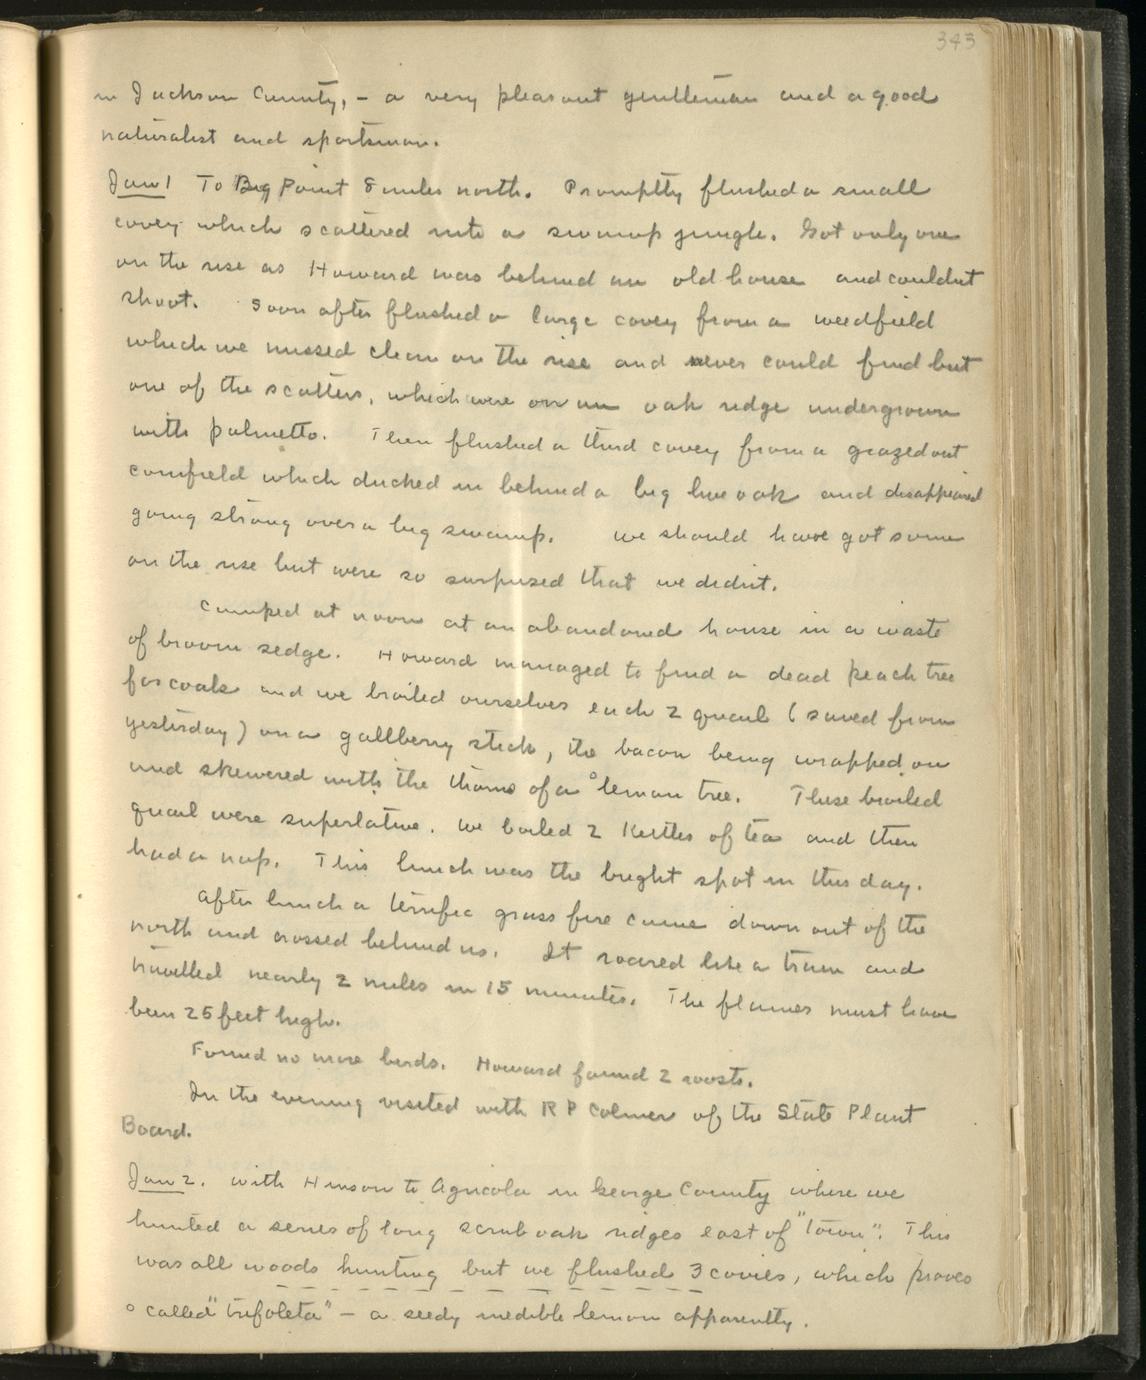 343
in Jackson County, - a very pleasant gentleman and a good
naturalist and sportsman.
Jan 1 To Big Point 8 miles north. Promptly flushed a small
covey which scattered into a swamp jungle. Got only one
on the rise as Howard was behind an old house and couldnt
shoot. Soon after flushed a large covey from a weedfield
which we missed clean on the rise and never could find but
one of the scatters, which were on an oak ridge undergrown
with palmetto. Then flushed a third covey from a grazed out
cornfield which ducked in behind a big live oak and disappeared
going strong over a big swamp. We should have got some
on the rise but were so surprised that we didnt.
Camped at noon at an abandoned house in a waste
of broom sedge. Howard managed to find a dead peach tree
for coals and we broiled ourselves each 2 quail (saved from
yesterday) on a gallberry stick, the bacon being wrapped on
and skewered with the thorns of a °lemon tree. These broiled
quail were superlative. We boiled 2 kettles of tea and then
had a nap. This lunch was the bright spot in this day.
After lunch a terrific grass fire came down out of the
north and crossed behind us. It roared like a train and
travelled nearly 2 miles in 15 minutes. The flames must have
been 25 feet high.
Found no more birds. Howard found 2 roosts.
In the evening visited with R P Colmer of the State Plant
Board.
Jan 2. With Hinson to Agricola in George County where we
hunted a series of long scrub oak ridges east of "town". This
was all woods hunting but we flushed 3 covies, which proves
° called "trifoleta" - a seedy inedible lemon apparently.